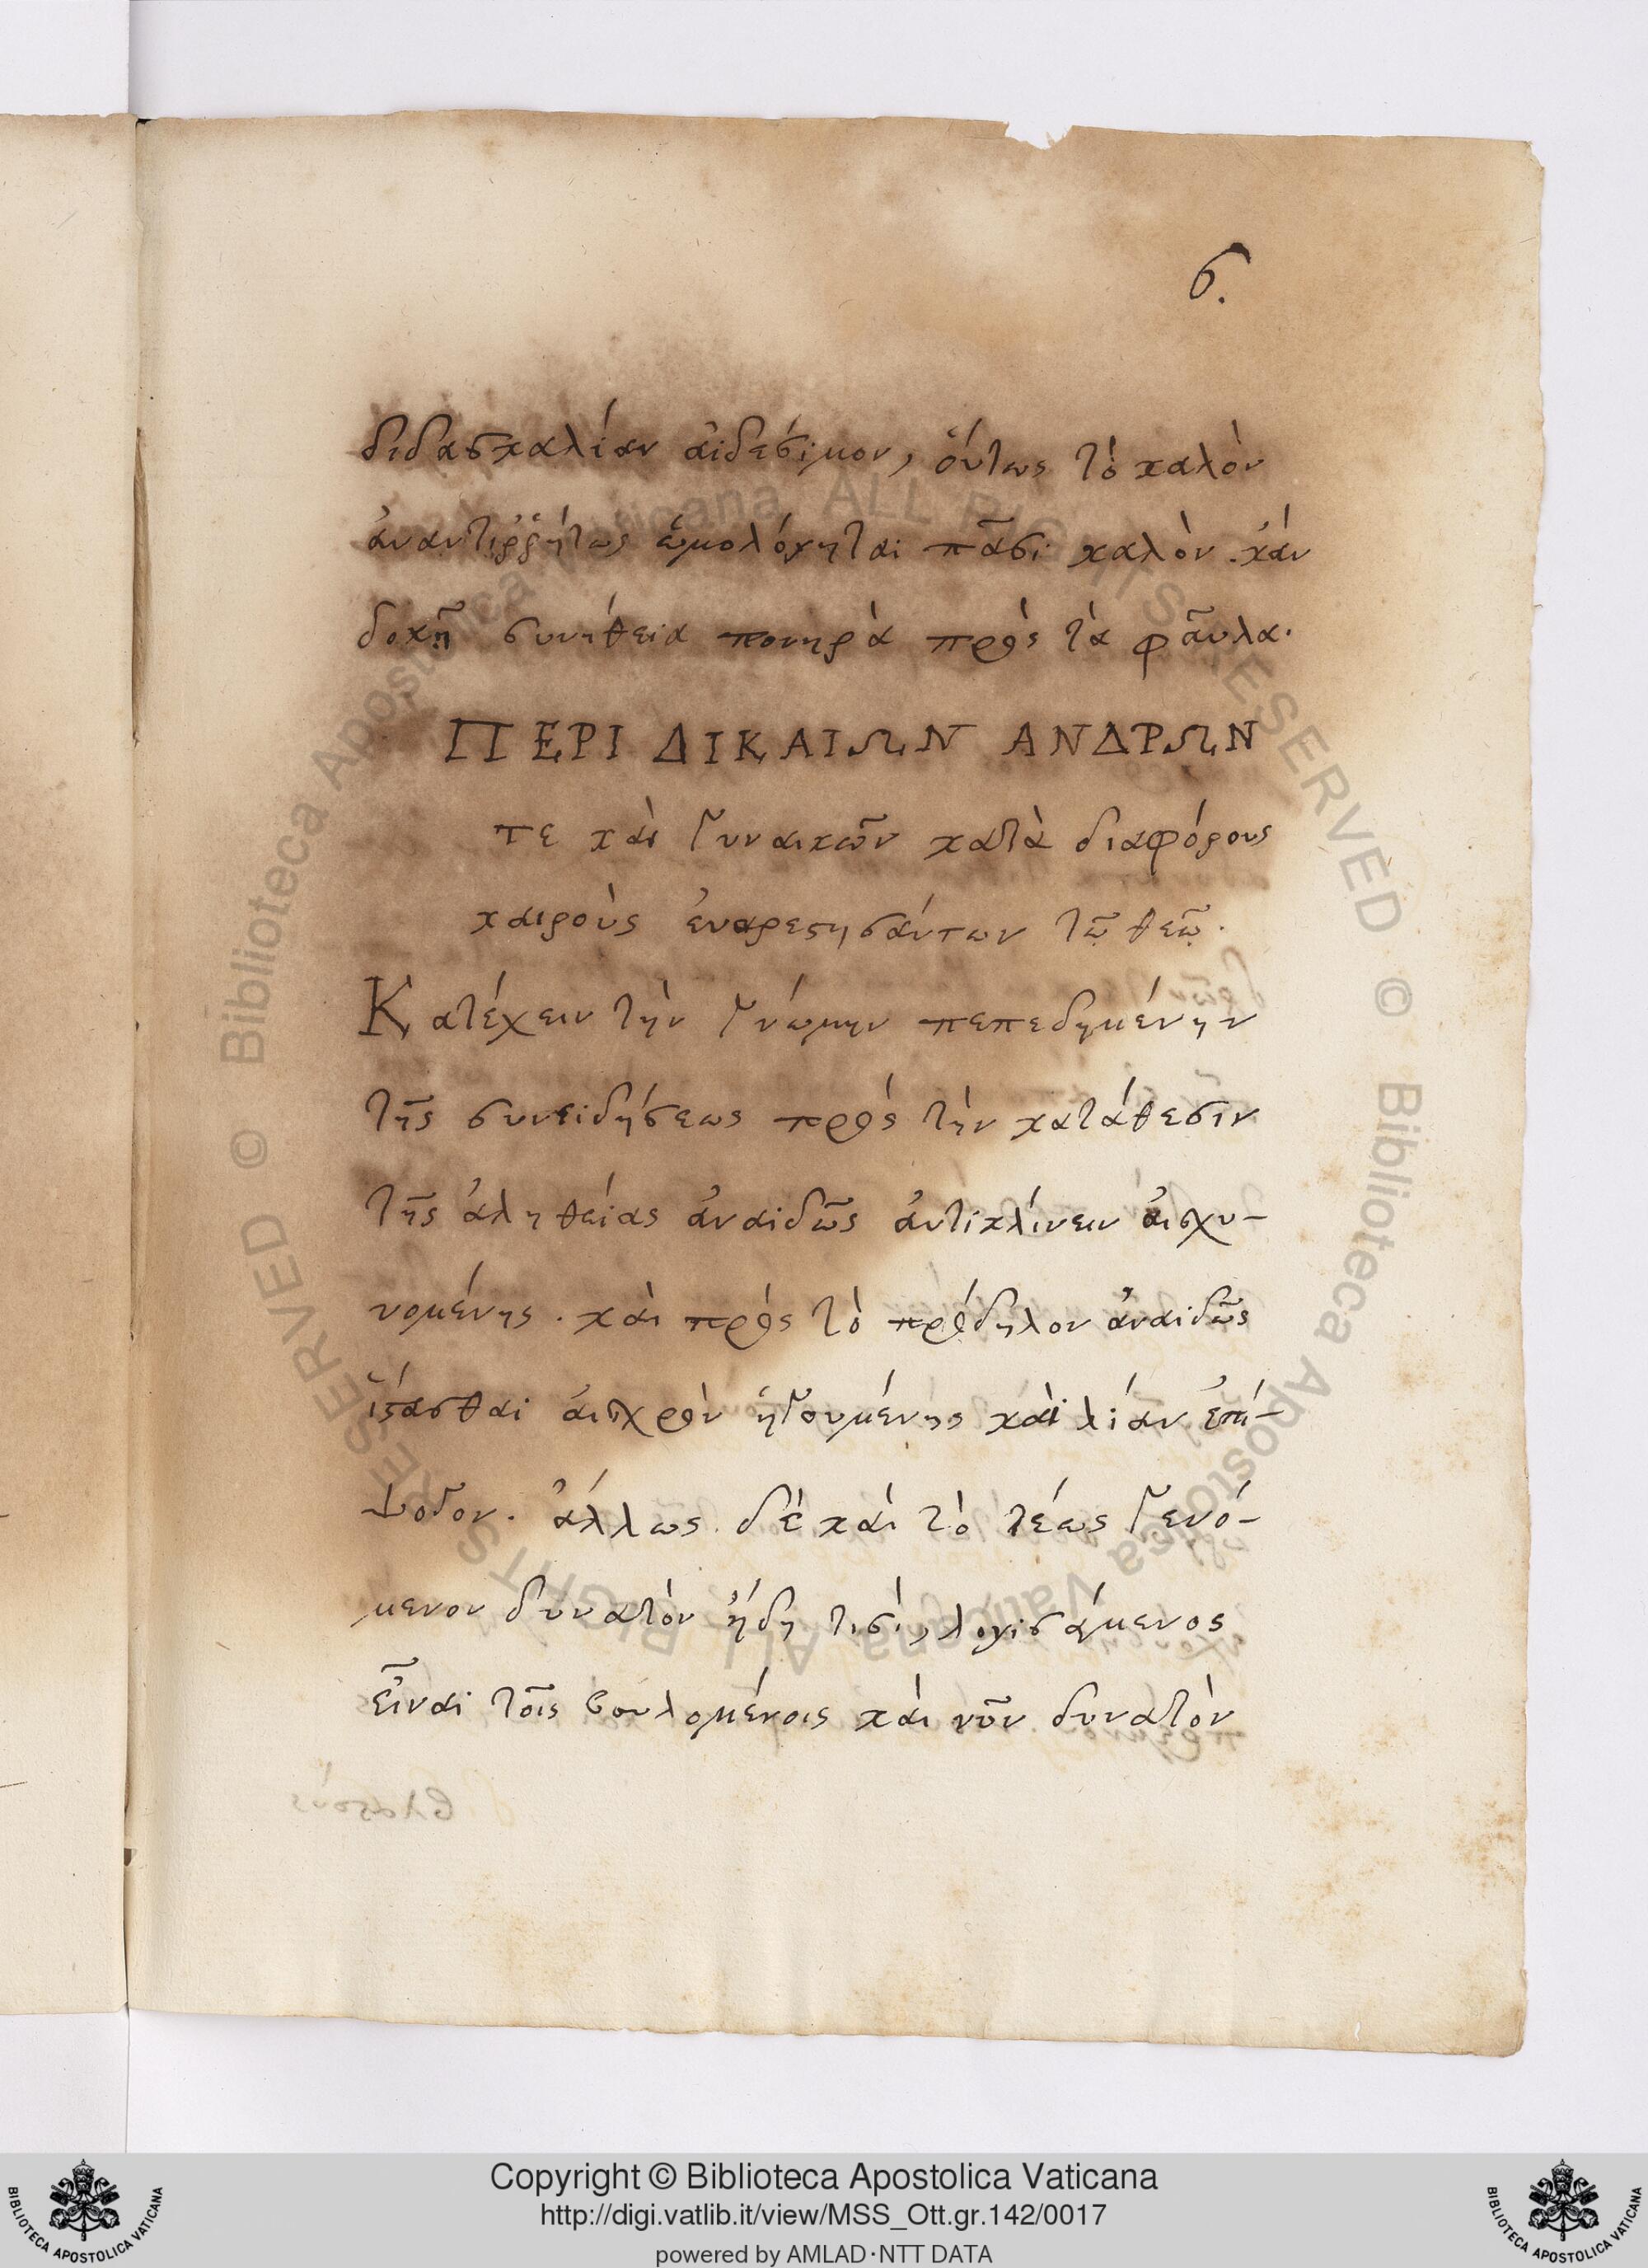 6.
διδασκαλίαν αἰδέσιμον, οὕτως τὸ καλὸν
ἀναντιῤῥήτως ὡμολόγηται πᾶσι καλὸν. κἂν
δοκῇ συνήθεια πονηρὰ πρὸς τὰ φαῦλα.
ΠΕΡΙ ΔΙΚΑΙΩΝ ΑΝΔΡΩΝ
τε καὶ γυναικῶν κατὰ διαφόρους
καιροὺς ἐυαρεστησάντων τῷ θεῷ.
Κατέχειν τὴν γνώμην πεπεδημένην
τῆς συνειδήσεως πρὸς τὴν κατάθεσιν
τῆς ἀληθείας ἀναιδῶς ἀντικλίνειν ἀισχυ-
νομένης. καὶ πρὸς τὸ πρόδηλον ἀναιδῶς
ἵστασθαι ἀισχρὸν ἡγουμένης καὶ λίαν ἐπί-
ψογον. ἄλλως δὲ καὶ τὸ τέως γενό-
μενον δυνατὸν ἤδη τισὶ, λογισάμενος
εἶναι τοῖς βουλομένοις καὶ νῦν δυνατὸν
Copyright © Biblioteca Apostolica Vaticana
http://digi.vatlib.it/view/MSS_Ott.gr.142/0017
powered by AMLAD·NTT DATA
BIBLIOTECA APOSTOLICA VATICANA
BIBLIOTECA APOSTOLICA VATICANA
© Biblioteca Apostolica Vaticana ALL RIGHTS RESERVED © Biblioteca Apostolica Vaticana ALL RIGHTS RESERVED